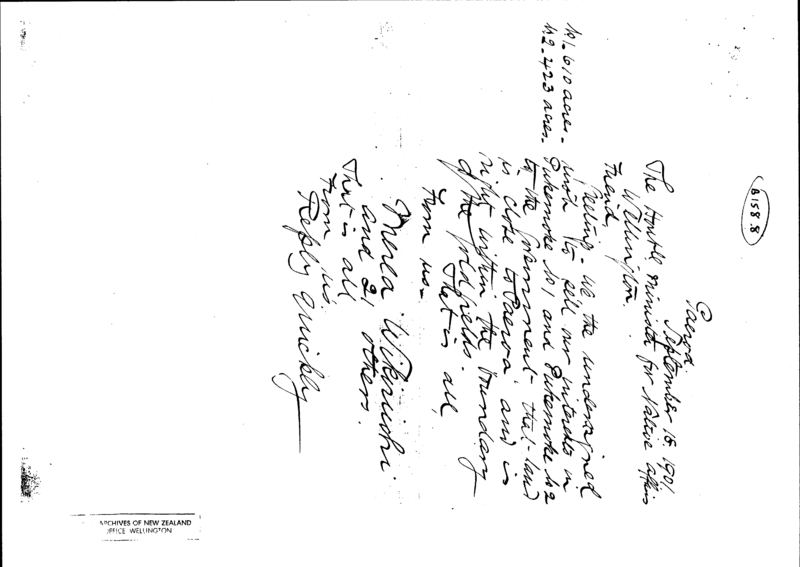 B158.8
Paeroa.
September 16. 1901
The Honble Minister for Native Affairs
Wellington.
Friend,
Greeting - We the undersigned
No1. 610 acres - wish to sell our interests in
No2. 423 acres. Pukemoke No 1 and Pukemoke No 2
to the Government - that land
is close to Paeroa and is
right within the boundary
of the goldfields.
That is all,
from us -
Merea Wikiriwhi.
and 21 others.
That is all
from us.
Reply quickly
ARCHIVES OF NEW ZEALAND
OFFICE WELLINGTON